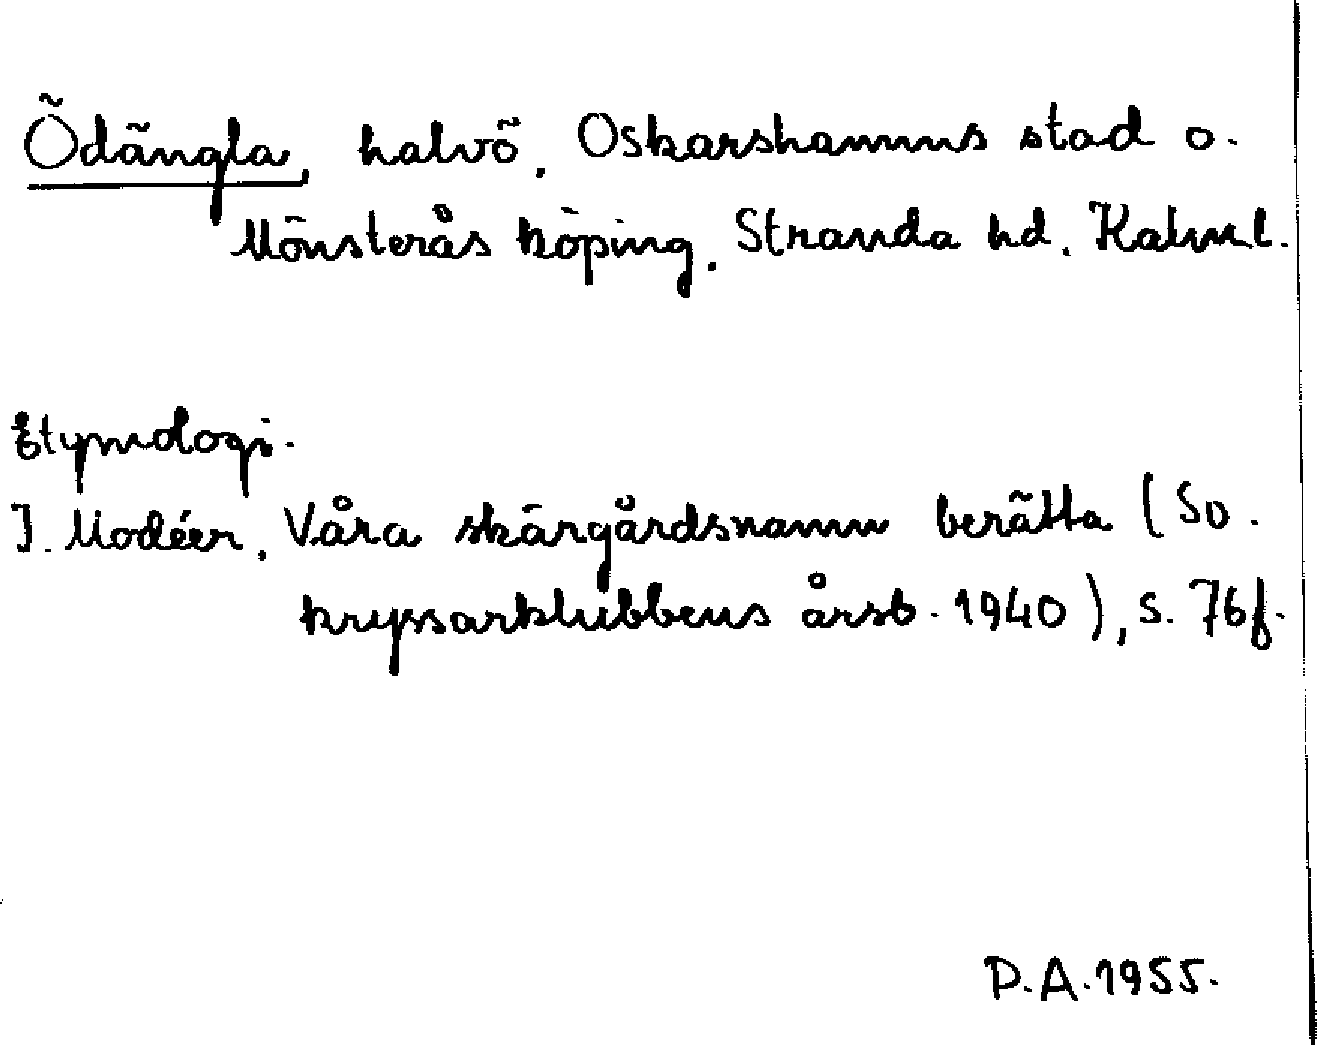 Ödängla, halvö, Oskarshamns stad o.
Mönsterås köping, Stranda hd, Kalm.l.
Etymologi.
I. Modéer, Våra skärgårdsnamn berätta (Sv.
kryssarklubbens årsb. 1940), s. 76f.
P.A. 1955.